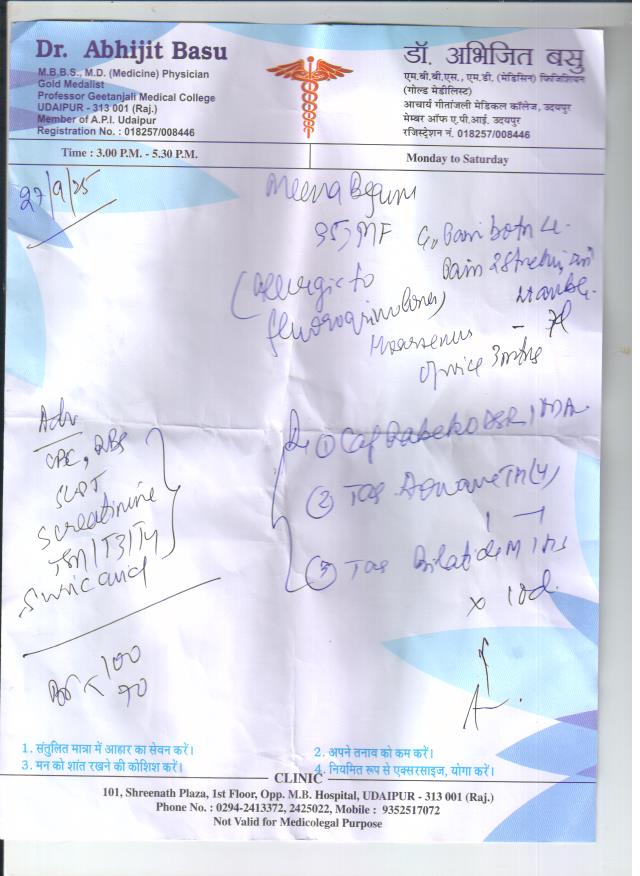 Dr. Abhijit Basu
M.B.B.S., M.D. (Medicine) Physician
Gold Medalist
Professor Geetanjali Medical College
UDAIPUR - 313 001 (Raj.)
Member of A.P.I. Udaipur
Registration No. : 018257/008446
डॉ. अभिजित बसु
एम.बी.बी.एस., एम.डी. (मेडिसिन) फिजिशियन
(गोल्ड मेडीलिस्ट)
आचार्य गीतांजली मेडिकल कॉलेज, उदयपुर
मेम्बर ऑफ ए.पी.आई. उदयपुर
रजिस्ट्रेशन नं. 018257/008446
Time : 3.00 P.M. - 5.30 P.M.
Monday to Saturday
27/9/25
Meena Begum
35) MF
Pain both
Pain
(Allergic to
fluoroquinolones)
Hoarseness
of voice 3 mths
Adv
CBC, RBS
SGPT
S creatinine
TSH/T3/T4
S uric acid
① Cap DSR
② Tab
③ Tab
x 10d.
100
70
1. संतुलित मात्रा में आहार का सेवन करें।
2. अपने तनाव को कम करें।
3. मन को शांत रखने की कोशिश करें।
4. नियमित रूप से एक्सरसाइज, योगा करें।
CLINIC
101, Shreenath Plaza, 1st Floor, Opp. M.B. Hospital, UDAIPUR - 313 001 (Raj.)
Phone No. : 0294-2413372, 2425022, Mobile : 9352517072
Not Valid for Medicolegal Purpose